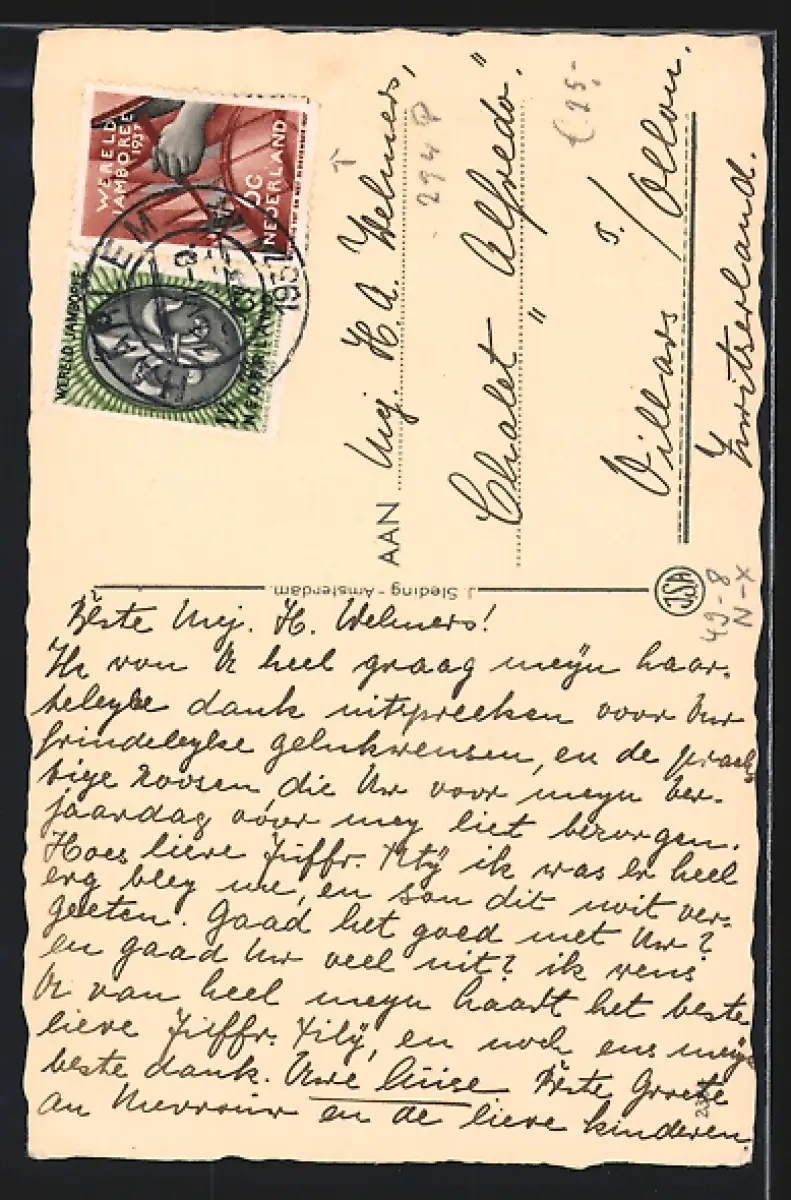 WERELD
JAMBOREE
1937
6C
NEDERLAND
WERELD JAMBOREE
1½
NEDERLAND
HAARLEM
1937
AAN
Mej. H. A. Welmers,
Chalet "Alfredo".
Villars s/Ollon.
Zwitserland.
T
294 P
25,-
J. Sleding - Amsterdam.
JSA
49-8
N-X
Beste Mej. H. Welmers!
Ik von U heel graag meÿn haar-
teleyke dank uitspreeken voor Uw
frindeleylke gelukwensen, en de prach-
tige roosen, die Uw voor meyn ver-
jaardag voor mey liet bezorgen.
Hoes lieve Jüffr. Tilÿ ik was er heel
erg bley me, en san dit noit ver-
geeten. Gaad het goed met Uw?
en gaad Uw veel uit? ik wens
U van heel meyn haart het beste
lieve Jüffr. Tilÿ, en noch ens meyn
beste dank. Uwe Lüise Beste Groete
an Mevrouw en de lieve kinderen.